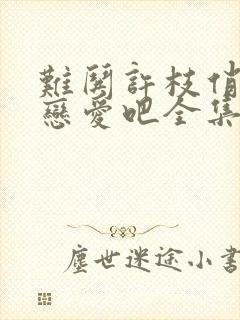 難關許枝俏
戀愛吧全集
塵世迷途小書